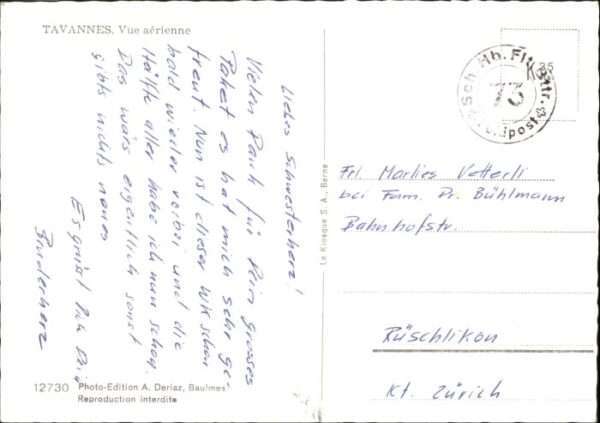 TAVANNES. Vue aérienne
Liebes Schwesterherz!
Vielen Dank für Dein grosses
Paket es hat mich sehr ge-
freut. Nun ist dieser WK schon
bald wieder vorbei und die
Hälfte aller habe ich nun schon.
Das wärs eigentlich sonst
gibts nichts neues
Es grüsst Dich Dein
Bruderherz
12730 Photo-Edition A. Deriaz, Baulmes
Reproduction interdite
Le Kiosque S. A., Berne
Sch. Hb. Flt. Bttr.
73
Feldpost
35
Frl. Marlies Vetterli
bei Fam. Dr. Bühlmann
Bahnhofstr.
Rüschlikon
Kt. Zürich